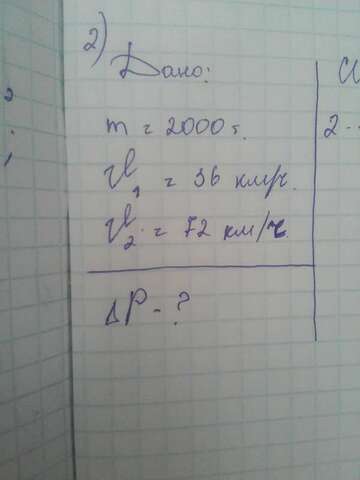 2)
Дано:
m = 2000 т.
υ₁ = 36 км/ч.
υ₂ = 72 км/ч.
ΔP - ?
2